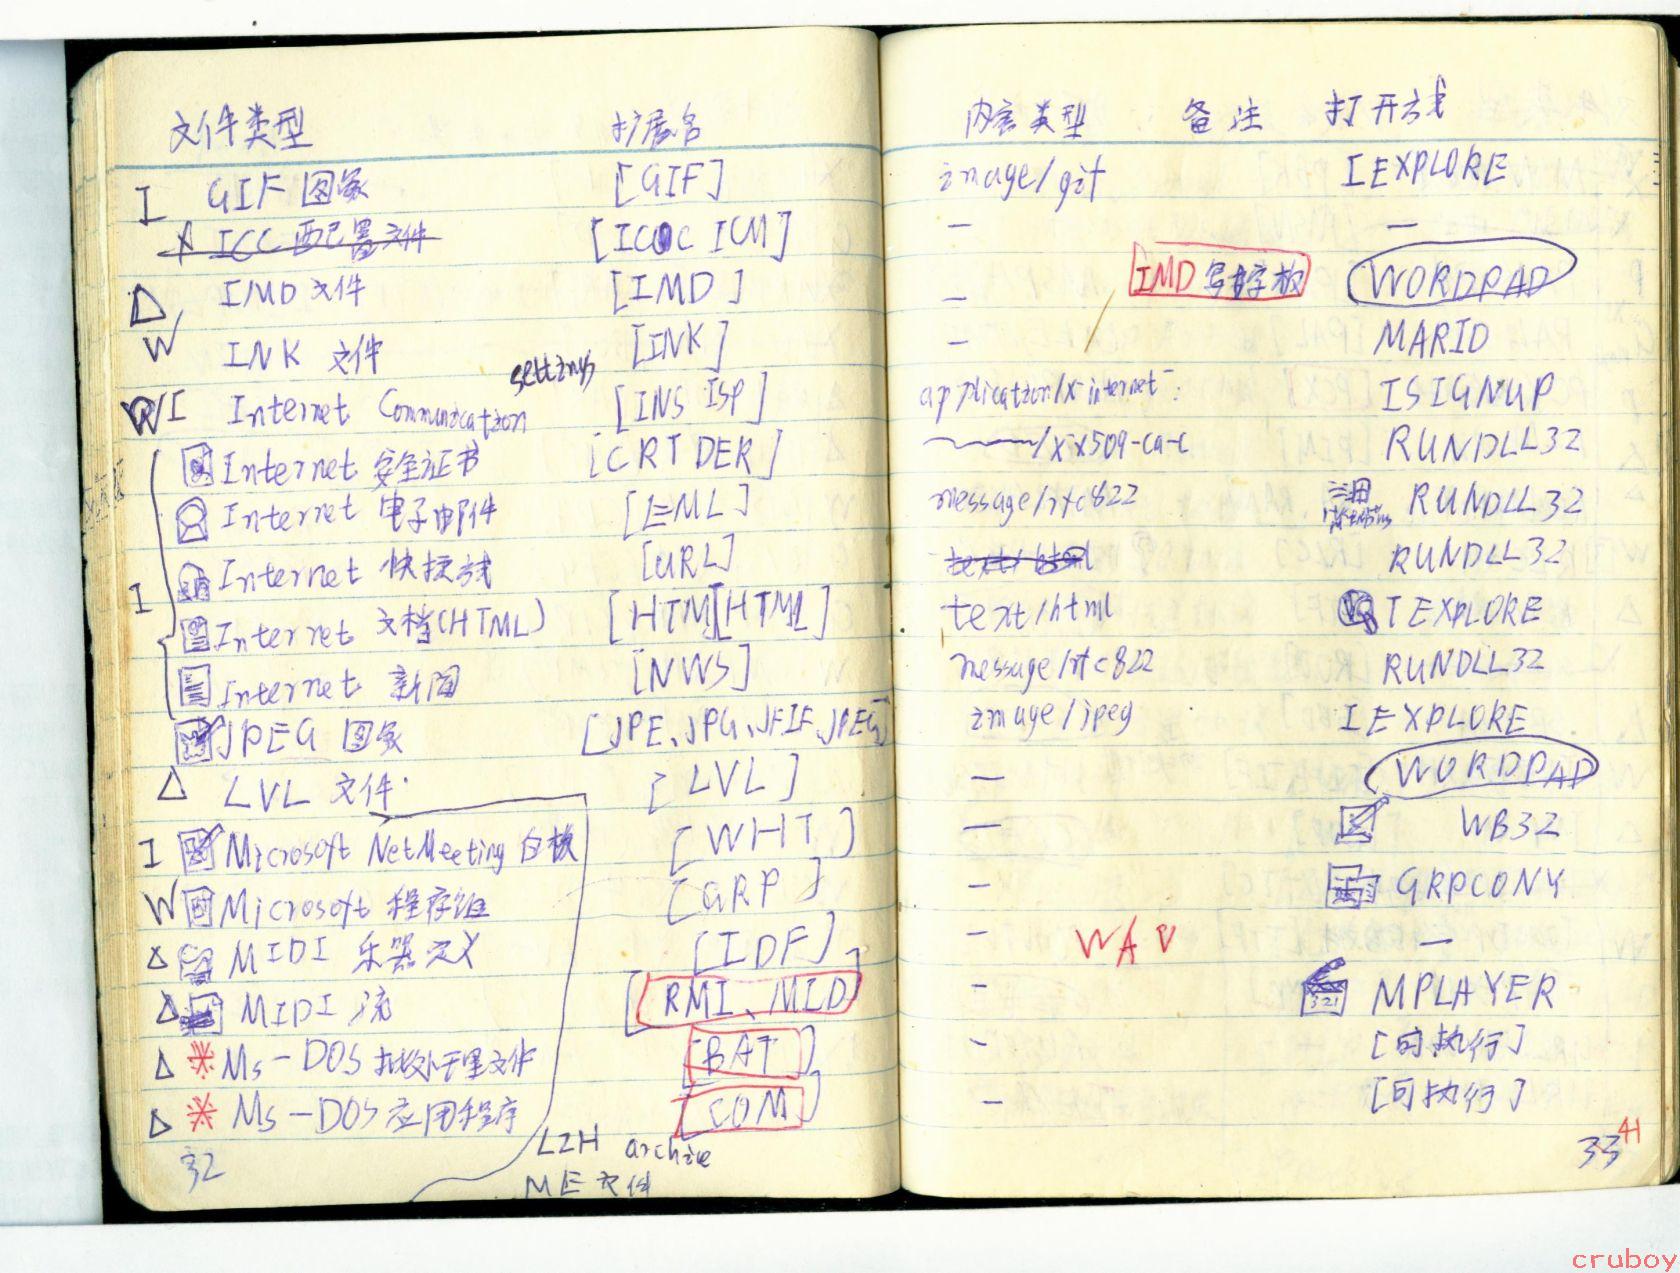 文件类型 扩展名 内容类型 备注 打开方式
I GIF 图象 [GIF] image/gif IEXPLORE
X ICC 配置文件 [ICC ICM] — —
△ IMD 文件 [IMD] — IMD 写字板 WORDPAD
W INK 文件 [INK] — MARID
W/I Internet Communication settings [INS ISP] application/x-internet- ISIGNUP
Internet 安全证书 [CRT DER] /x-x509-ca-c RUNDLL32
Internet 电子邮件 [EML] message/rfc822 RUNDLL32
Internet 快捷方式 [URL] text/html RUNDLL32
I Internet 文档(HTML) [HTM][HTML] text/html IEXPLORE
Internet 新闻 [NWS] message/rfc822 RUNDLL32
JPEG 图象 [JPE、JPG、JFIF、JPEG] image/jpeg IEXPLORE
△ LVL 文件 [LVL] — WORDPAD
I Microsoft NetMeeting 白板 [WHT] — WB32
W Microsoft 程序组 [GRP] — GRPCONV
△ MIDI 乐器定义 [IDF] — WAV —
△ MIDI 流 [RMI、MID] — MPLAYER
△ ※ Ms-DOS 批处理文件 [BAT] — [可执行]
△ ※ Ms-DOS 应用程序 [COM] — [可执行]
LZH archive
ME 文件
32 33 41
cruboy